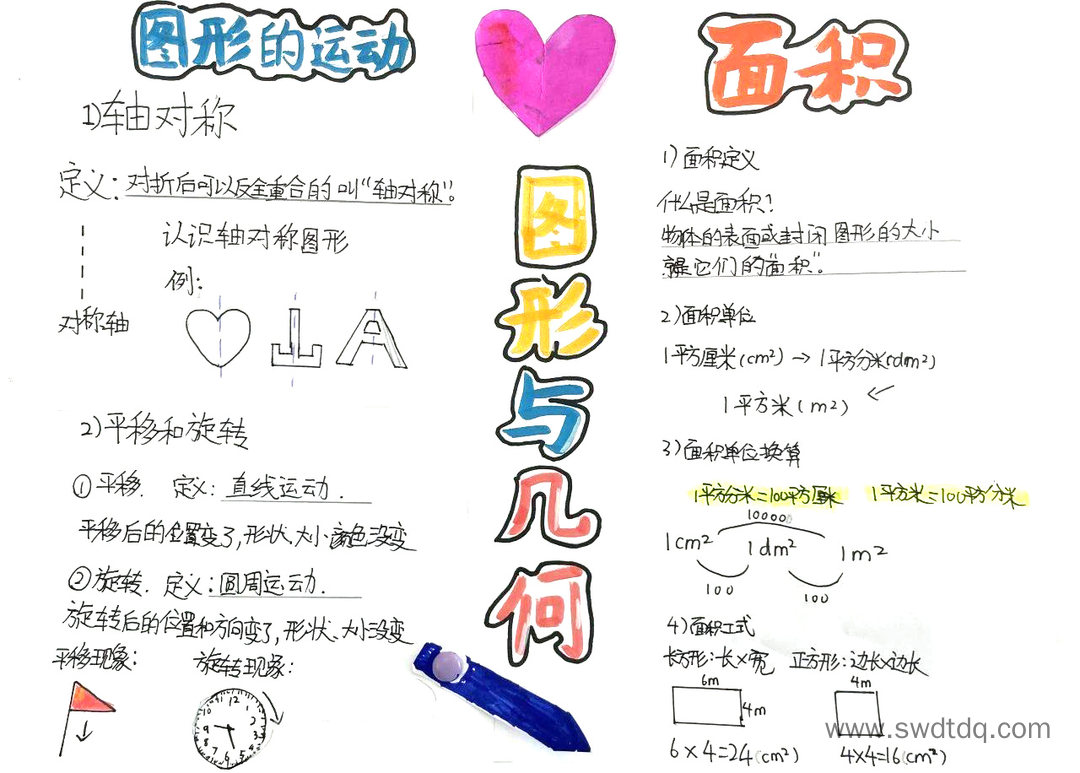 图形的运动
1)轴对称
定义:对折后可以反全重合的叫“轴对称”。
认识轴对称图形
例:
对称轴
2)平移和旋转
①平移. 定义:直线运动.
平移后的位置变了,形状、大小颜色没变
②旋转. 定义:圆周运动.
旋转后的位置和方向变了,形状、大小没变
平移现象:
旋转现象:
12
1
2
3
4
5
6
7
8
9
10
11
图形与几何
面积
1)面积定义
什么是面积?
物体的表面或封闭图形的大小
就是它们的“面积”。
2)面积单位
1平方厘米(cm²)→1平方分米(dm²)
1平方米(m²)
3)面积单位换算
1平方分米=100平方厘米 1平方米=100平方分米
10000
1cm² 1dm² 1m²
100 100
4)面积工式
长方形:长×宽 正方形:边长×边长
6m 4m
4m
6×4=24(cm²) 4×4=16(cm²)
www.swdtdq.com